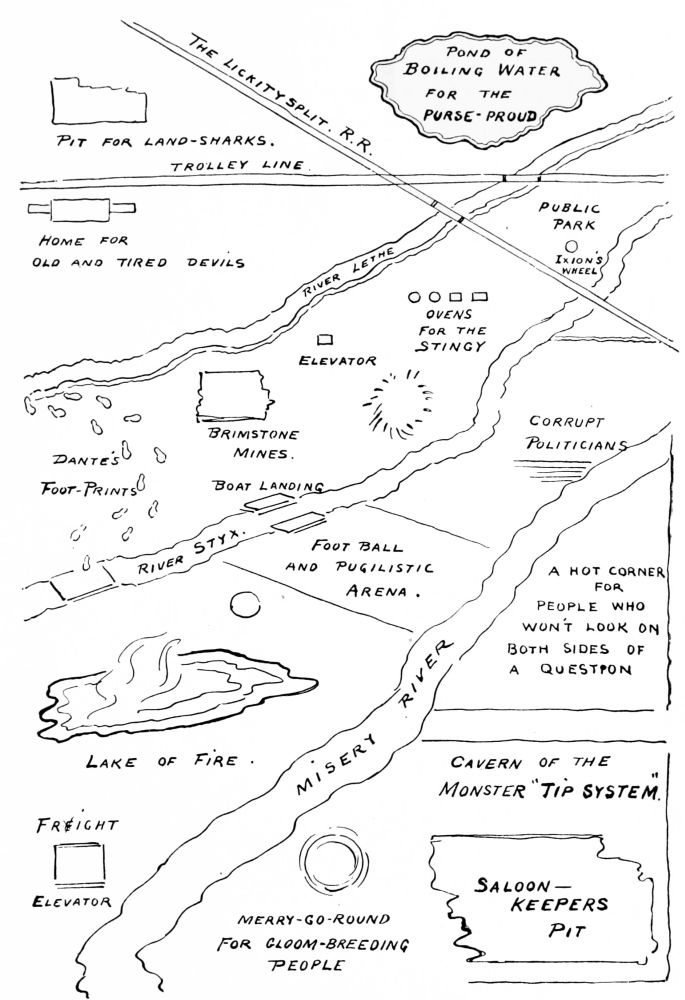 THE LICKITYSPLIT. R.R.
POND OF
BOILING WATER
FOR THE
PURSE-PROUD
PIT FOR LAND-SHARKS.
TROLLEY LINE
HOME FOR
OLD AND TIRED DEVILS
PUBLIC
PARK
IXION'S
WHEEL
RIVER LETHE
OVENS
FOR THE
STINGY
ELEVATOR
BRIMSTONE
MINES.
DANTE'S
FOOT-PRINTS
BOAT LANDING
CORRUPT
POLITICIANS
RIVER STYX.
FOOT BALL
AND PUGILISTIC
ARENA.
A HOT CORNER
FOR
PEOPLE WHO
WON'T LOOK ON
BOTH SIDES OF
A QUESTION
LAKE OF FIRE.
MISERY RIVER
CAVERN OF THE
MONSTER "TIP SYSTEM".
FREIGHT
ELEVATOR
MERRY-GO-ROUND
FOR GLOOM-BREEDING
PEOPLE
SALOON-
KEEPERS
PIT